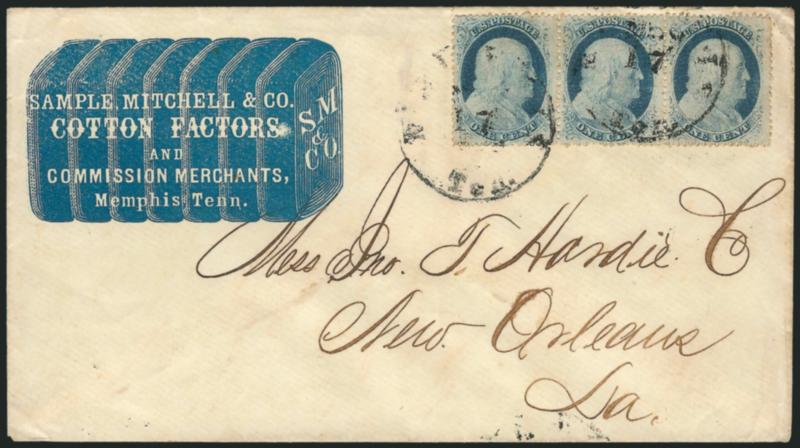 SAMPLE, MITCHELL & CO.
COTTON FACTORS
AND
COMMISSION MERCHANTS,
Memphis Tenn.
S M
&
CO.
U.S. POSTAGE
ONE CENT
U.S. POSTAGE
ONE CENT
U.S. POSTAGE
ONE CENT
17
Ten.
Mess Jno. T. Hardie. C
New Orleans
La.